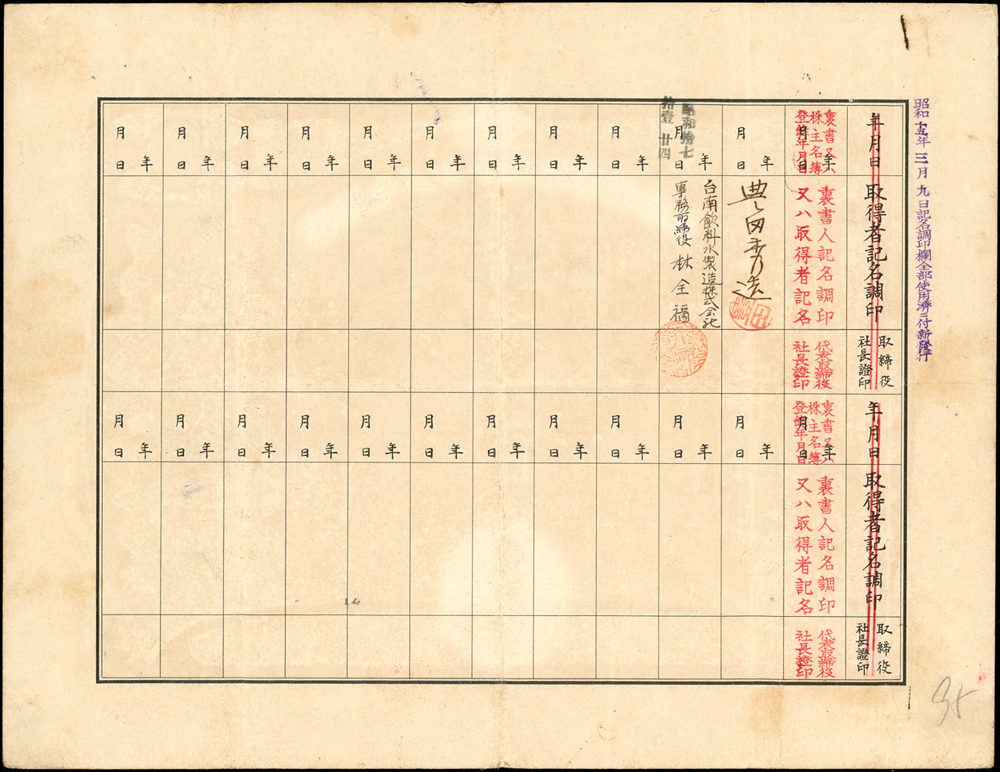 昭和十五年三月九日記名調印欄全部使用済ニ付新發行
年月日
取得者記名調印
取締役
社長證印
裏書又ハ
株主名簿
登錄年月日
年
月
日
裏書人記名調印
又ハ取得者記名
代表取締役
社長證印
年
月
日
昭和拾七
年
月
日
拾壹 廿四
台南飲料水製造株式会社
專務取締役 林全福
年
月
日
年
月
日
年
月
日
年
月
日
年
月
日
年
月
日
年
月
日
年
月
日
年月日
取得者記名調印
取締役
社長證印
裏書又ハ
株主名簿
登錄年月日
年
月
日
裏書人記名調印
又ハ取得者記名
代表取締役
社長證印
年
月
日
年
月
日
年
月
日
年
月
日
年
月
日
年
月
日
年
月
日
年
月
日
年
月
日
年
月
日